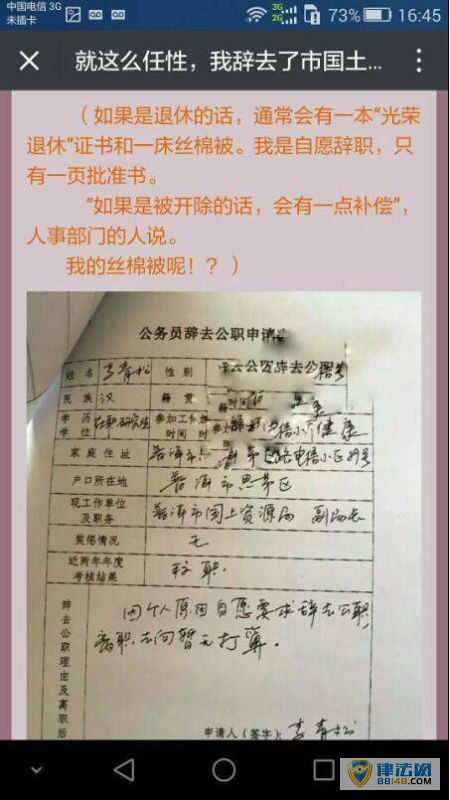 中国电信 3G
未插卡
3G
2G
73%
16:45
就这么任性，我辞去了市国土...
（如果是退休的话，通常会有一本“光荣
退休”证书和一床丝棉被。我是自愿辞职，只
有一页批准书。
“如果是被开除的话，会有一点补偿”，
人事部门的人说。
我的丝棉被呢！？）
公务员辞去公职申请
姓名 李青松 性别
民族 汉 籍贯
学历 学位 在职研究生 参加工作时间 健康
家庭住址 普洱市 小区
户口所在地 普洱市思茅区
现工作单位及职务 普洱市国土资源局 副局长
奖惩情况 无
近两年年度考核结果 称职.
辞去公职理由及离职后
因个人原因自愿要求辞去公职,
离职去向暂无打算.
申请人（签字）：李青松
律法网
88148.COM